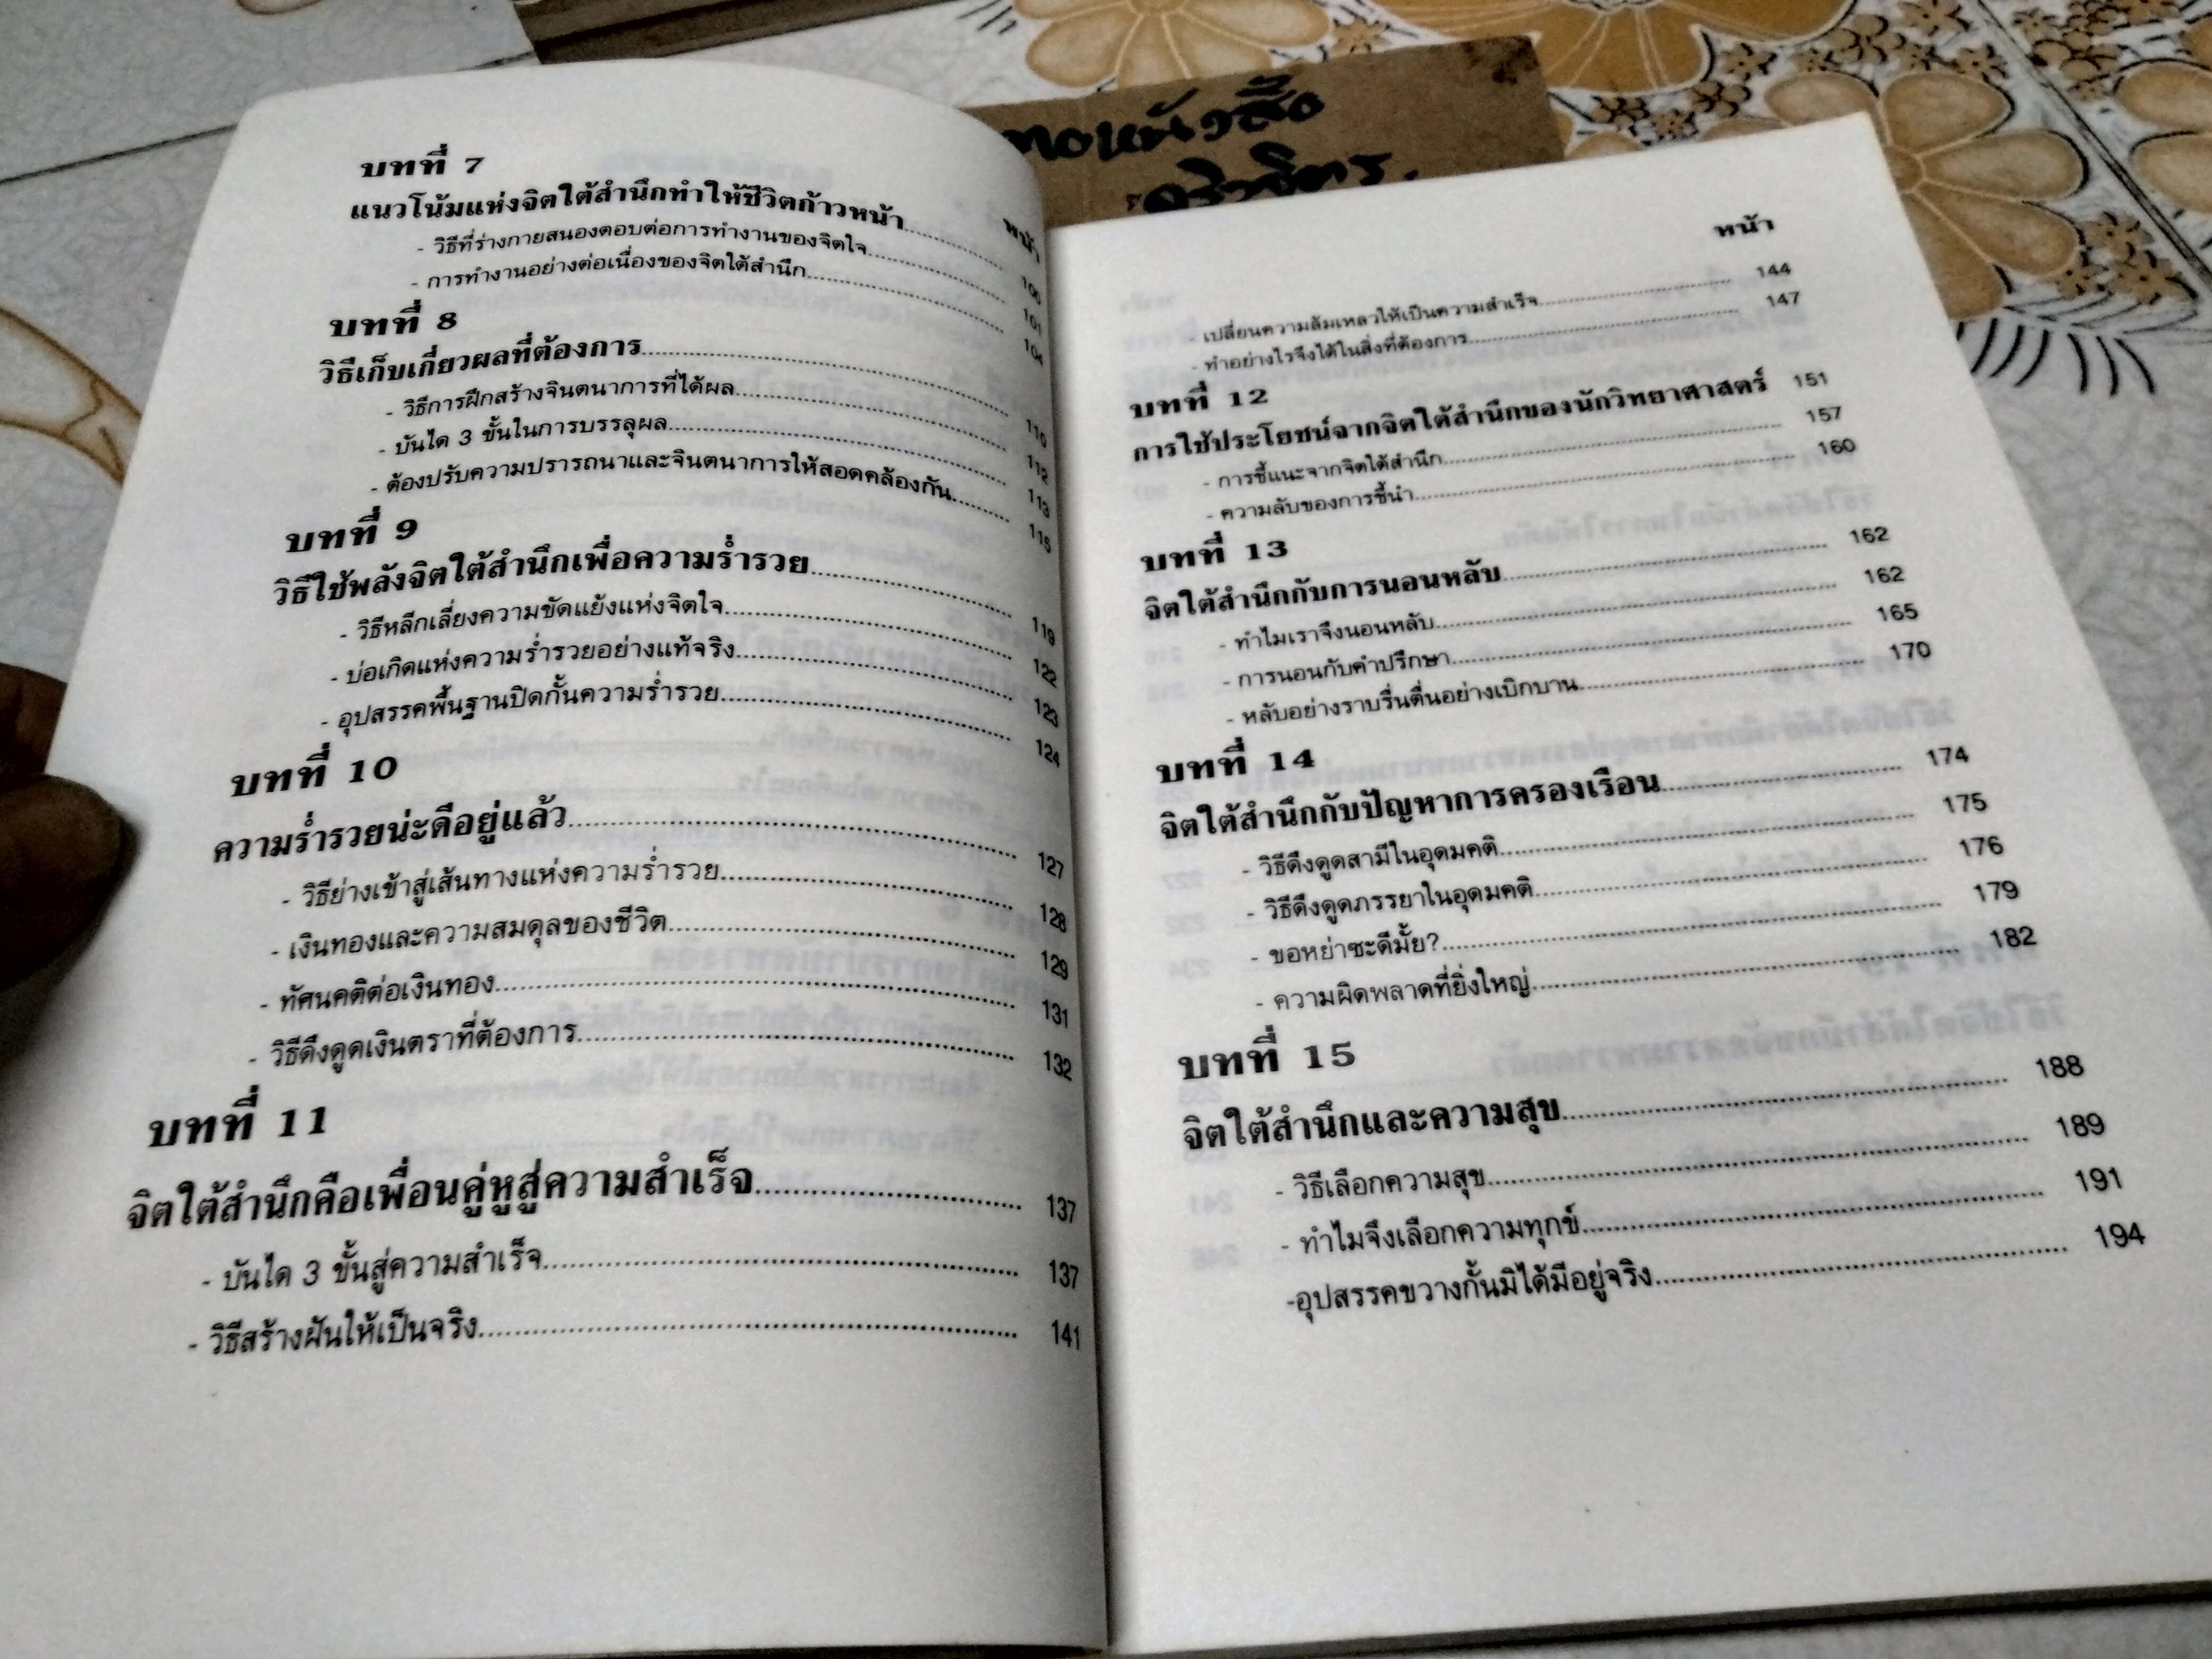 บทที่ 7
หน้า
แนวโน้มแห่งจิตใต้สำนึกทำให้ชีวิตก้าวหน้า 100
- วิธีที่ร่างกายสนองตอบต่อการทำงานของจิตใจ 101
- การทำงานอย่างต่อเนื่องของจิตใต้สำนึก 104
บทที่ 8
วิธีเก็บเกี่ยวผลที่ต้องการ 110
- วิธีการฝึกสร้างจินตนาการที่ได้ผล 112
- บันได 3 ขั้นในการบรรลุผล 113
- ต้องปรับความปรารถนาและจินตนาการให้สอดคล้องกัน 115
บทที่ 9
วิธีใช้พลังจิตใต้สำนึกเพื่อความร่ำรวย 119
- วิธีหลีกเลี่ยงความขัดแย้งแห่งจิตใจ 122
- บ่อเกิดแห่งความร่ำรวยอย่างแท้จริง 123
- อุปสรรคพื้นฐานปิดกั้นความร่ำรวย 124
บทที่ 10
ความร่ำรวยน่ะดีอยู่แล้ว 127
- วิธีย่างเข้าสู่เส้นทางแห่งความร่ำรวย 128
- เงินทองและความสมดุลของชีวิต 129
- ทัศนคติต่อเงินทอง 131
- วิธีดึงดูดเงินตราที่ต้องการ 132
บทที่ 11
จิตใต้สำนึกคือเพื่อนคู่หูสู่ความสำเร็จ 137
- บันได 3 ขั้นสู่ความสำเร็จ 137
- วิธีสร้างฝันให้เป็นจริง 141
หน้า
- เปลี่ยนความล้มเหลวให้เป็นความสำเร็จ 144
- ทำอย่างไรจึงได้ในสิ่งที่ต้องการ 147
บทที่ 12
การใช้ประโยชน์จากจิตใต้สำนึกของนักวิทยาศาสตร์ 151
- การชี้แนะจากจิตใต้สำนึก 157
- ความลับของการชี้นำ 160
บทที่ 13
จิตใต้สำนึกกับการนอนหลับ 162
- ทำไมเราจึงนอนหลับ 162
- การนอนกับคำปรึกษา 165
- หลับอย่างราบรื่นตื่นอย่างเบิกบาน 170
บทที่ 14
จิตใต้สำนึกกับปัญหาการครองเรือน 174
- วิธีดึงดูดสามีในอุดมคติ 175
- วิธีดึงดูดภรรยาในอุดมคติ 176
- ขอหย่าซะดีมั้ย? 179
- ความผิดพลาดที่ยิ่งใหญ่ 182
บทที่ 15
จิตใต้สำนึกและความสุข 188
- วิธีเลือกความสุข 189
- ทำไมจึงเลือกความทุกข์ 191
-อุปสรรคขวางกั้นมิได้มีอยู่จริง 194